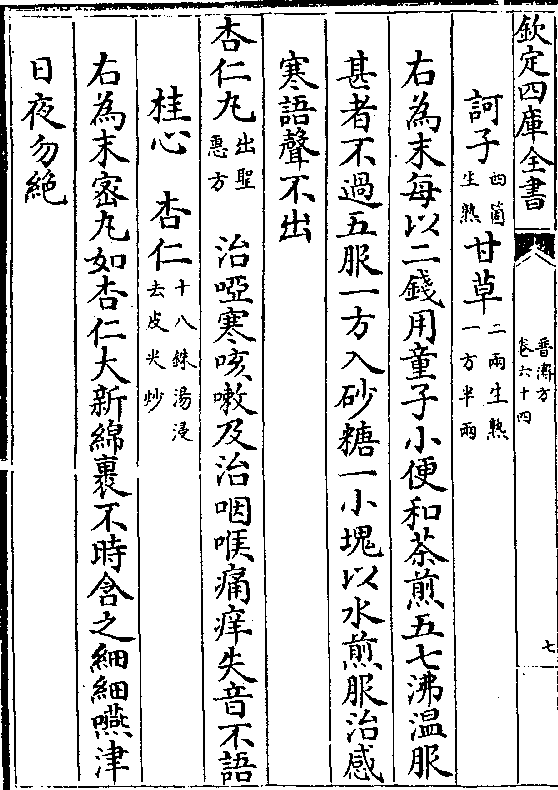 欽定四庫全書
普濟方
卷六十四
七
訶子四箇生熟甘草二兩生熟一方半兩
右為末每以二錢用童子小便和茶煎五七沸温服
甚者不過五服一方入砂糖一小塊以水煎服治感
寒語聲不出
杏仁丸出聖惠方 治啞寒咳嗽及治咽喉痛痒失音不語
桂心 杏仁十八銖湯浸去皮尖炒
右為末宻丸如杏仁大新綿裹不時含之細細嚥津
日夜勿絶